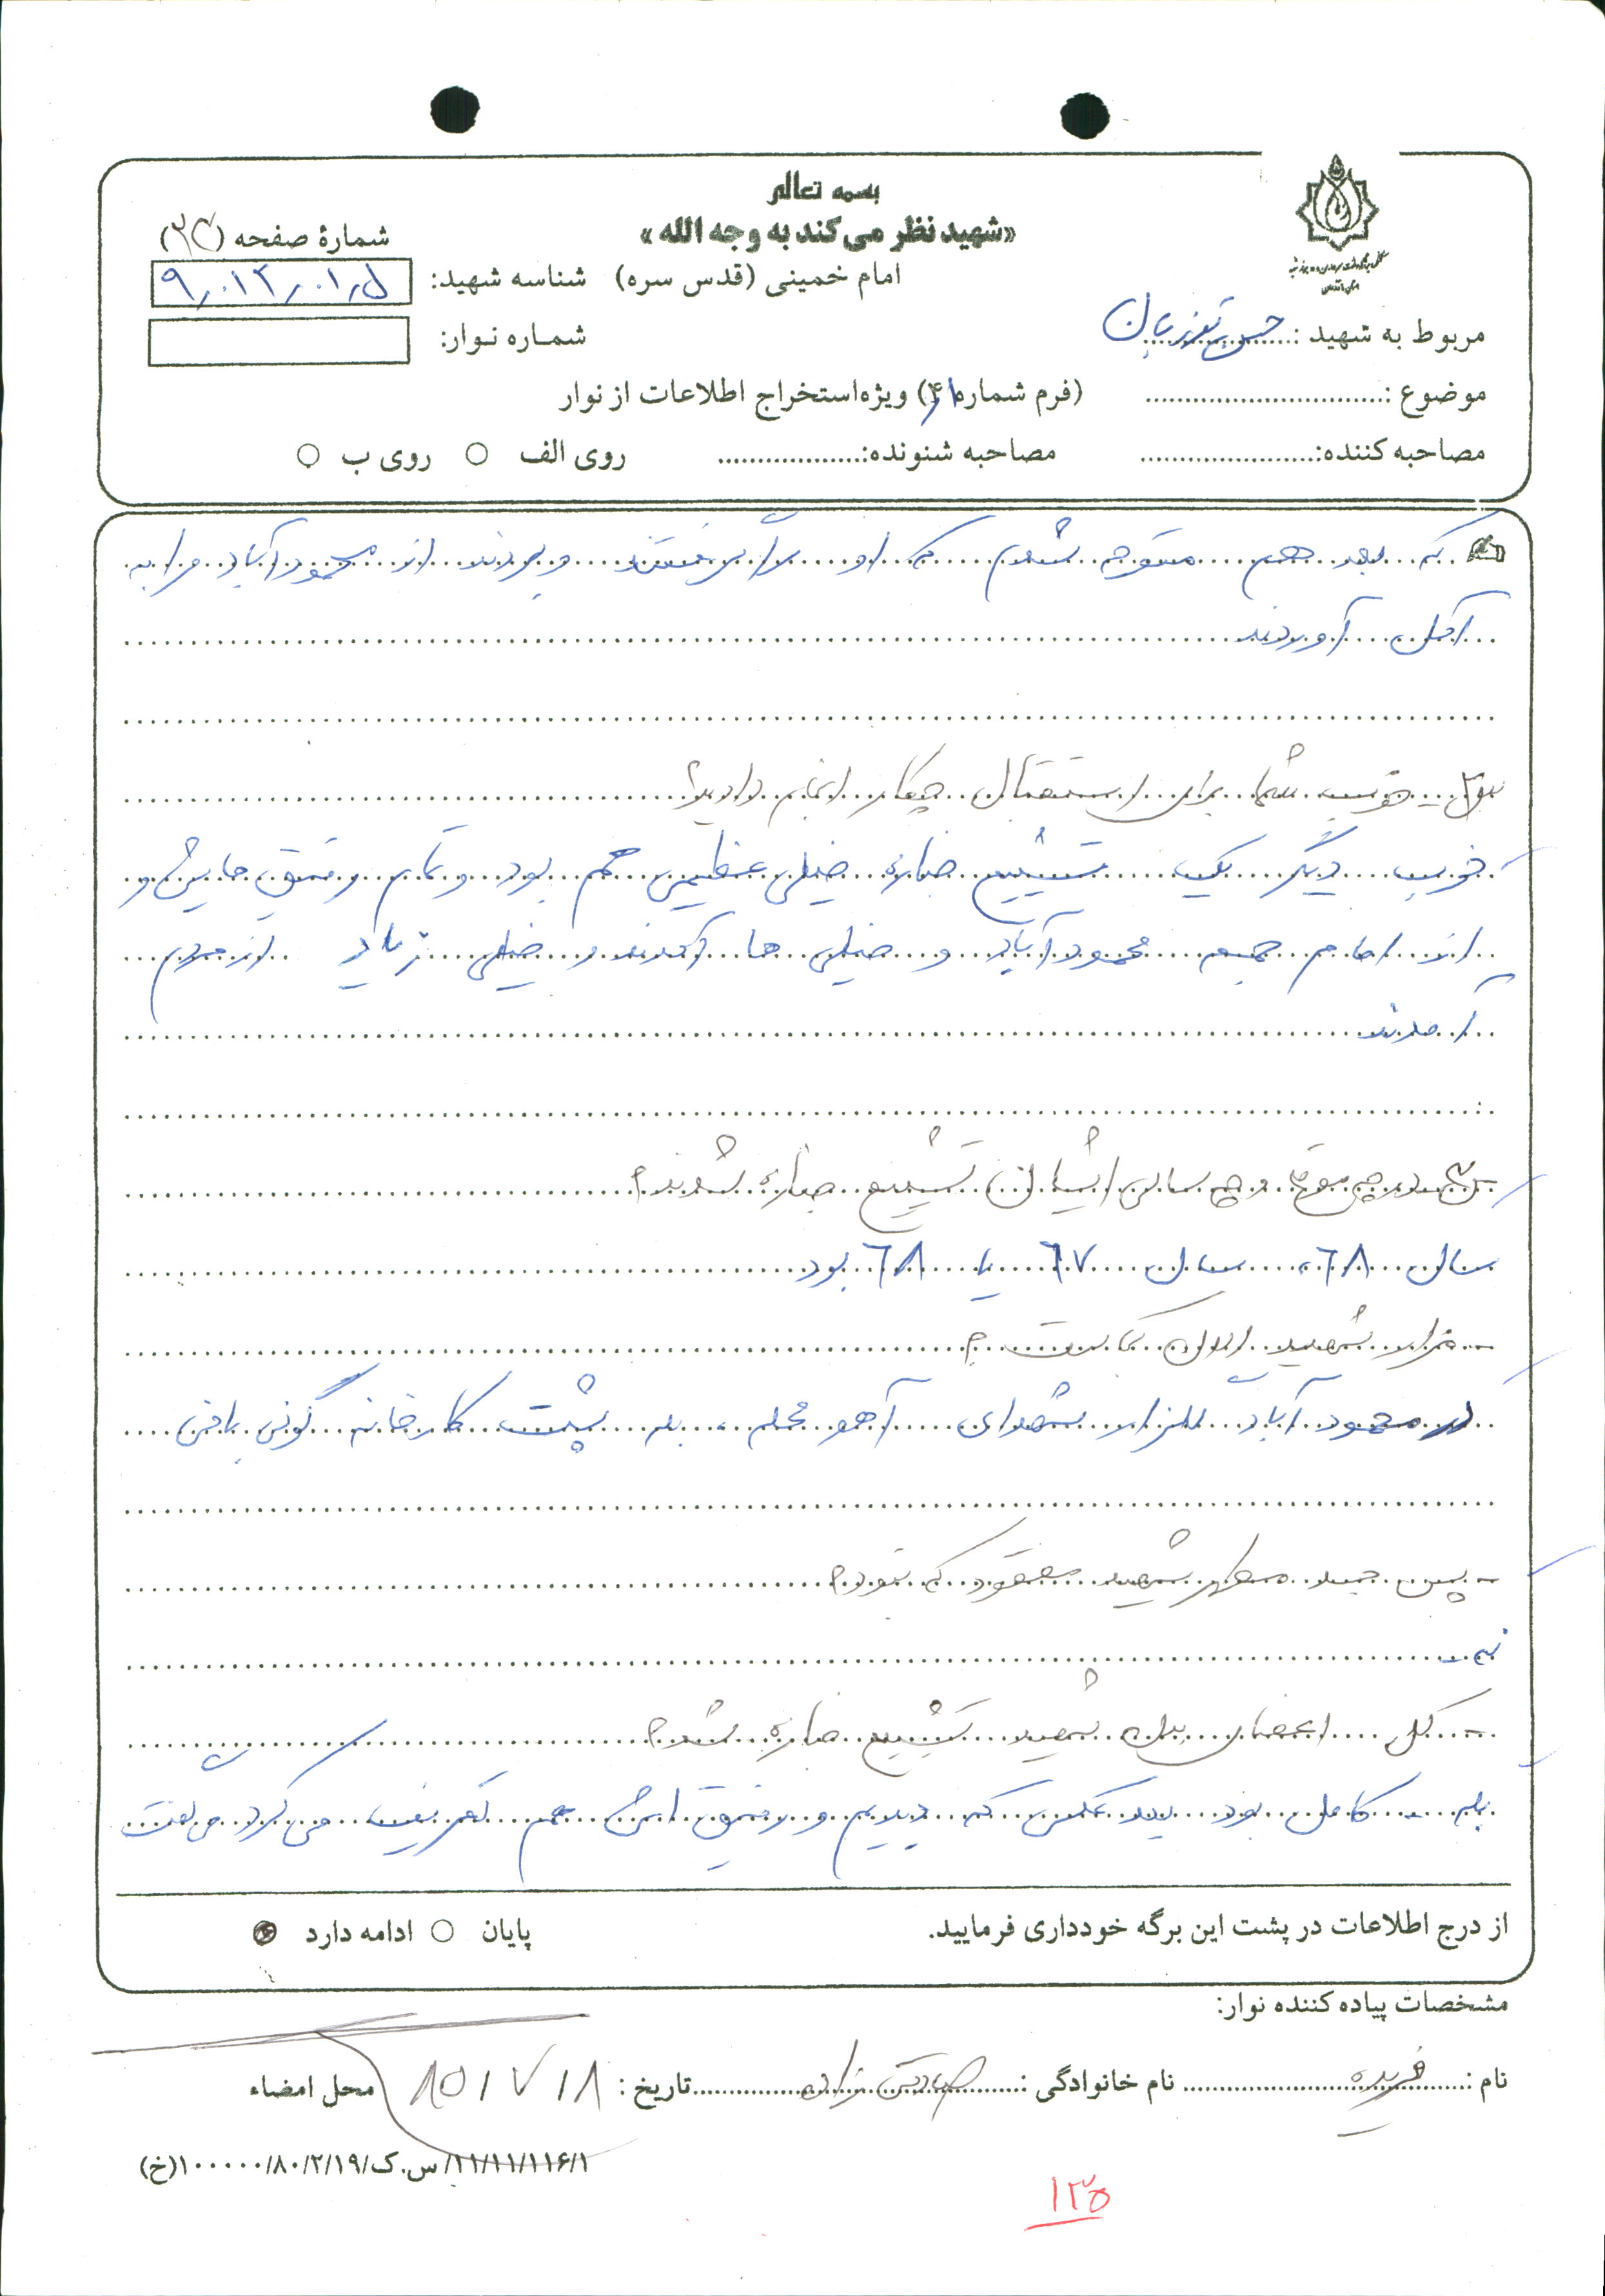 بسمه تعالی
«شهید نظر می‌کند به وجه الله»
شمارهٔ صفحه (۳۴)
امام خمینی (قدس سره)
شناسه شهید:
مربوط به شهید :
شمـاره نـوار:
موضوع :
(فرم شماره ۴/۱) ویژه استخراج اطلاعات از نوار
مصاحبه کننده:
مصاحبه شنونده:
روی الف
روی ب
که بعد هم متوجه شدیم که او را برداشتند و بردند از محمودآباد و را به
آوردند
خوب شما برای استقبال چیکار انجام دادید؟
خوب دیگر یک تشییع جنازه خیلی عظیمی هم بود و تمام رفیق هایش و
از امام جمعه محمودآباد و خیلی ها آمدند و خیلی زیاد از مردم
آمدند
در چه موقع و چه سالی ایشان تشییع جنازه شدند؟
سال ۶۸، سال ۶۷ یا ۶۸ بود
- مزار شهید الان کجاست؟
در محمودآباد گلزار شهدای آهو محله، به پشت کارخانه گونی بافی
- پس جسد مطهر شهید مفقود که نبود؟
نه
- کل اعضای بدن شهید تشییع جنازه شد؟
بله - کامل بود بعد عکس که دیدیم و رفیق اش هم تعریف می کرد می گفت
از درج اطلاعات در پشت این برگه خودداری فرمایید.
پایان
ادامه دارد
مشخصات پیاده کننده نوار:
نام : فریده
نام خانوادگی : صادقی زاده
تاریخ : ۸۵/۷/۸
محل امضاء
۱۱/۱۱/۱۱۶/۱/س.ک/۸۰/۲/۱۹/۱۰۰۰۰۰(خ)
۱۳۵